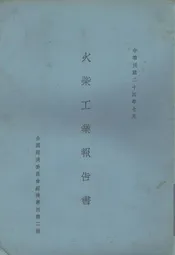 中華民國二十四年
火柴工業報告書
全國經濟委員會經濟專刊第二種